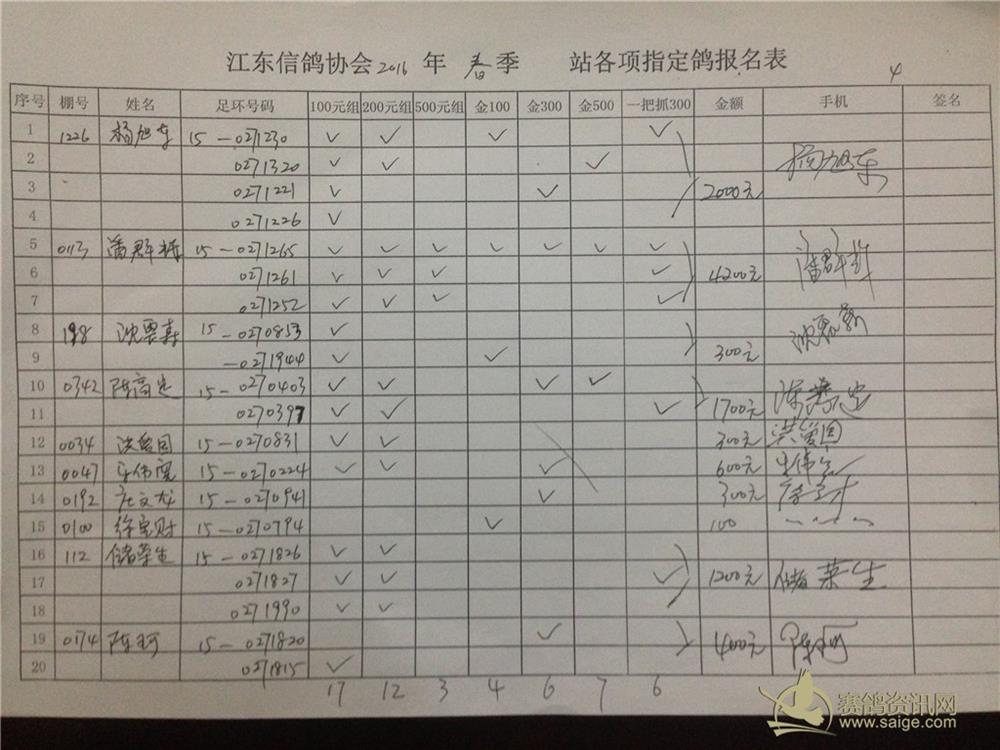 江东信鸽协会2016年 春季 站各项指定鸽报名表
4
序号 棚号 姓名 足环号码 100元组 200元组 500元组 金100 金300 金500 一把抓300 金额 手机 签名
1 1226 杨旭东 15-0271230 ✓ ✓ ✓ ✓
2 0271320 ✓ ✓ ✓ 杨旭东
3 0271221 ✓ ✓ 2000元
4 0271226 ✓
5 0113 潘群 15-0271265 ✓ ✓ ✓ ✓ ✓ ✓ ✓
6 0271261 ✓ ✓ ✓ ✓ 4200元 潘群
7 0271252 ✓ ✓ ✓ ✓
8 198 沈 15-0270853 ✓ 沈
9 -0271944 ✓ ✓ 300元
10 0342 陈 15-0270403 ✓ ✓ ✓ ✓
11 0270397 ✓ ✓ ✓ 1700元 陈
12 0034 洪曾国 15-0270831 ✓ ✓ 300元 洪曾国
13 0047 伟 15-0270224 ✓ ✓ ✓ 600元 伟
14 0192 文龙 15-0270941 ✓ 300元
15 0100 徐宝财 15-0270794 ✓ 100
16 112 储荣生 15-0271826 ✓ ✓
17 0271827 ✓ ✓ ✓ 1200元 储荣生
18 0271990 ✓ ✓
19 0174 陈珂 15-0271820 ✓ 400元 陈珂
20 0271815 ✓
17 12 3 4 6 7 6
赛鸽资讯网
www.saige.com